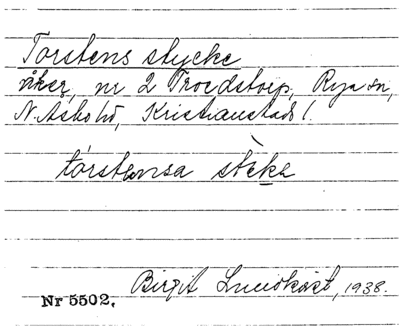 Torstens stycke
åker, nr 2 Troedstorp, Rya sn,
N. Åsbo hd, Kristianstads l.
tórstensa stèke
Birgit Lundkvist, 1938.
Nr 5502.